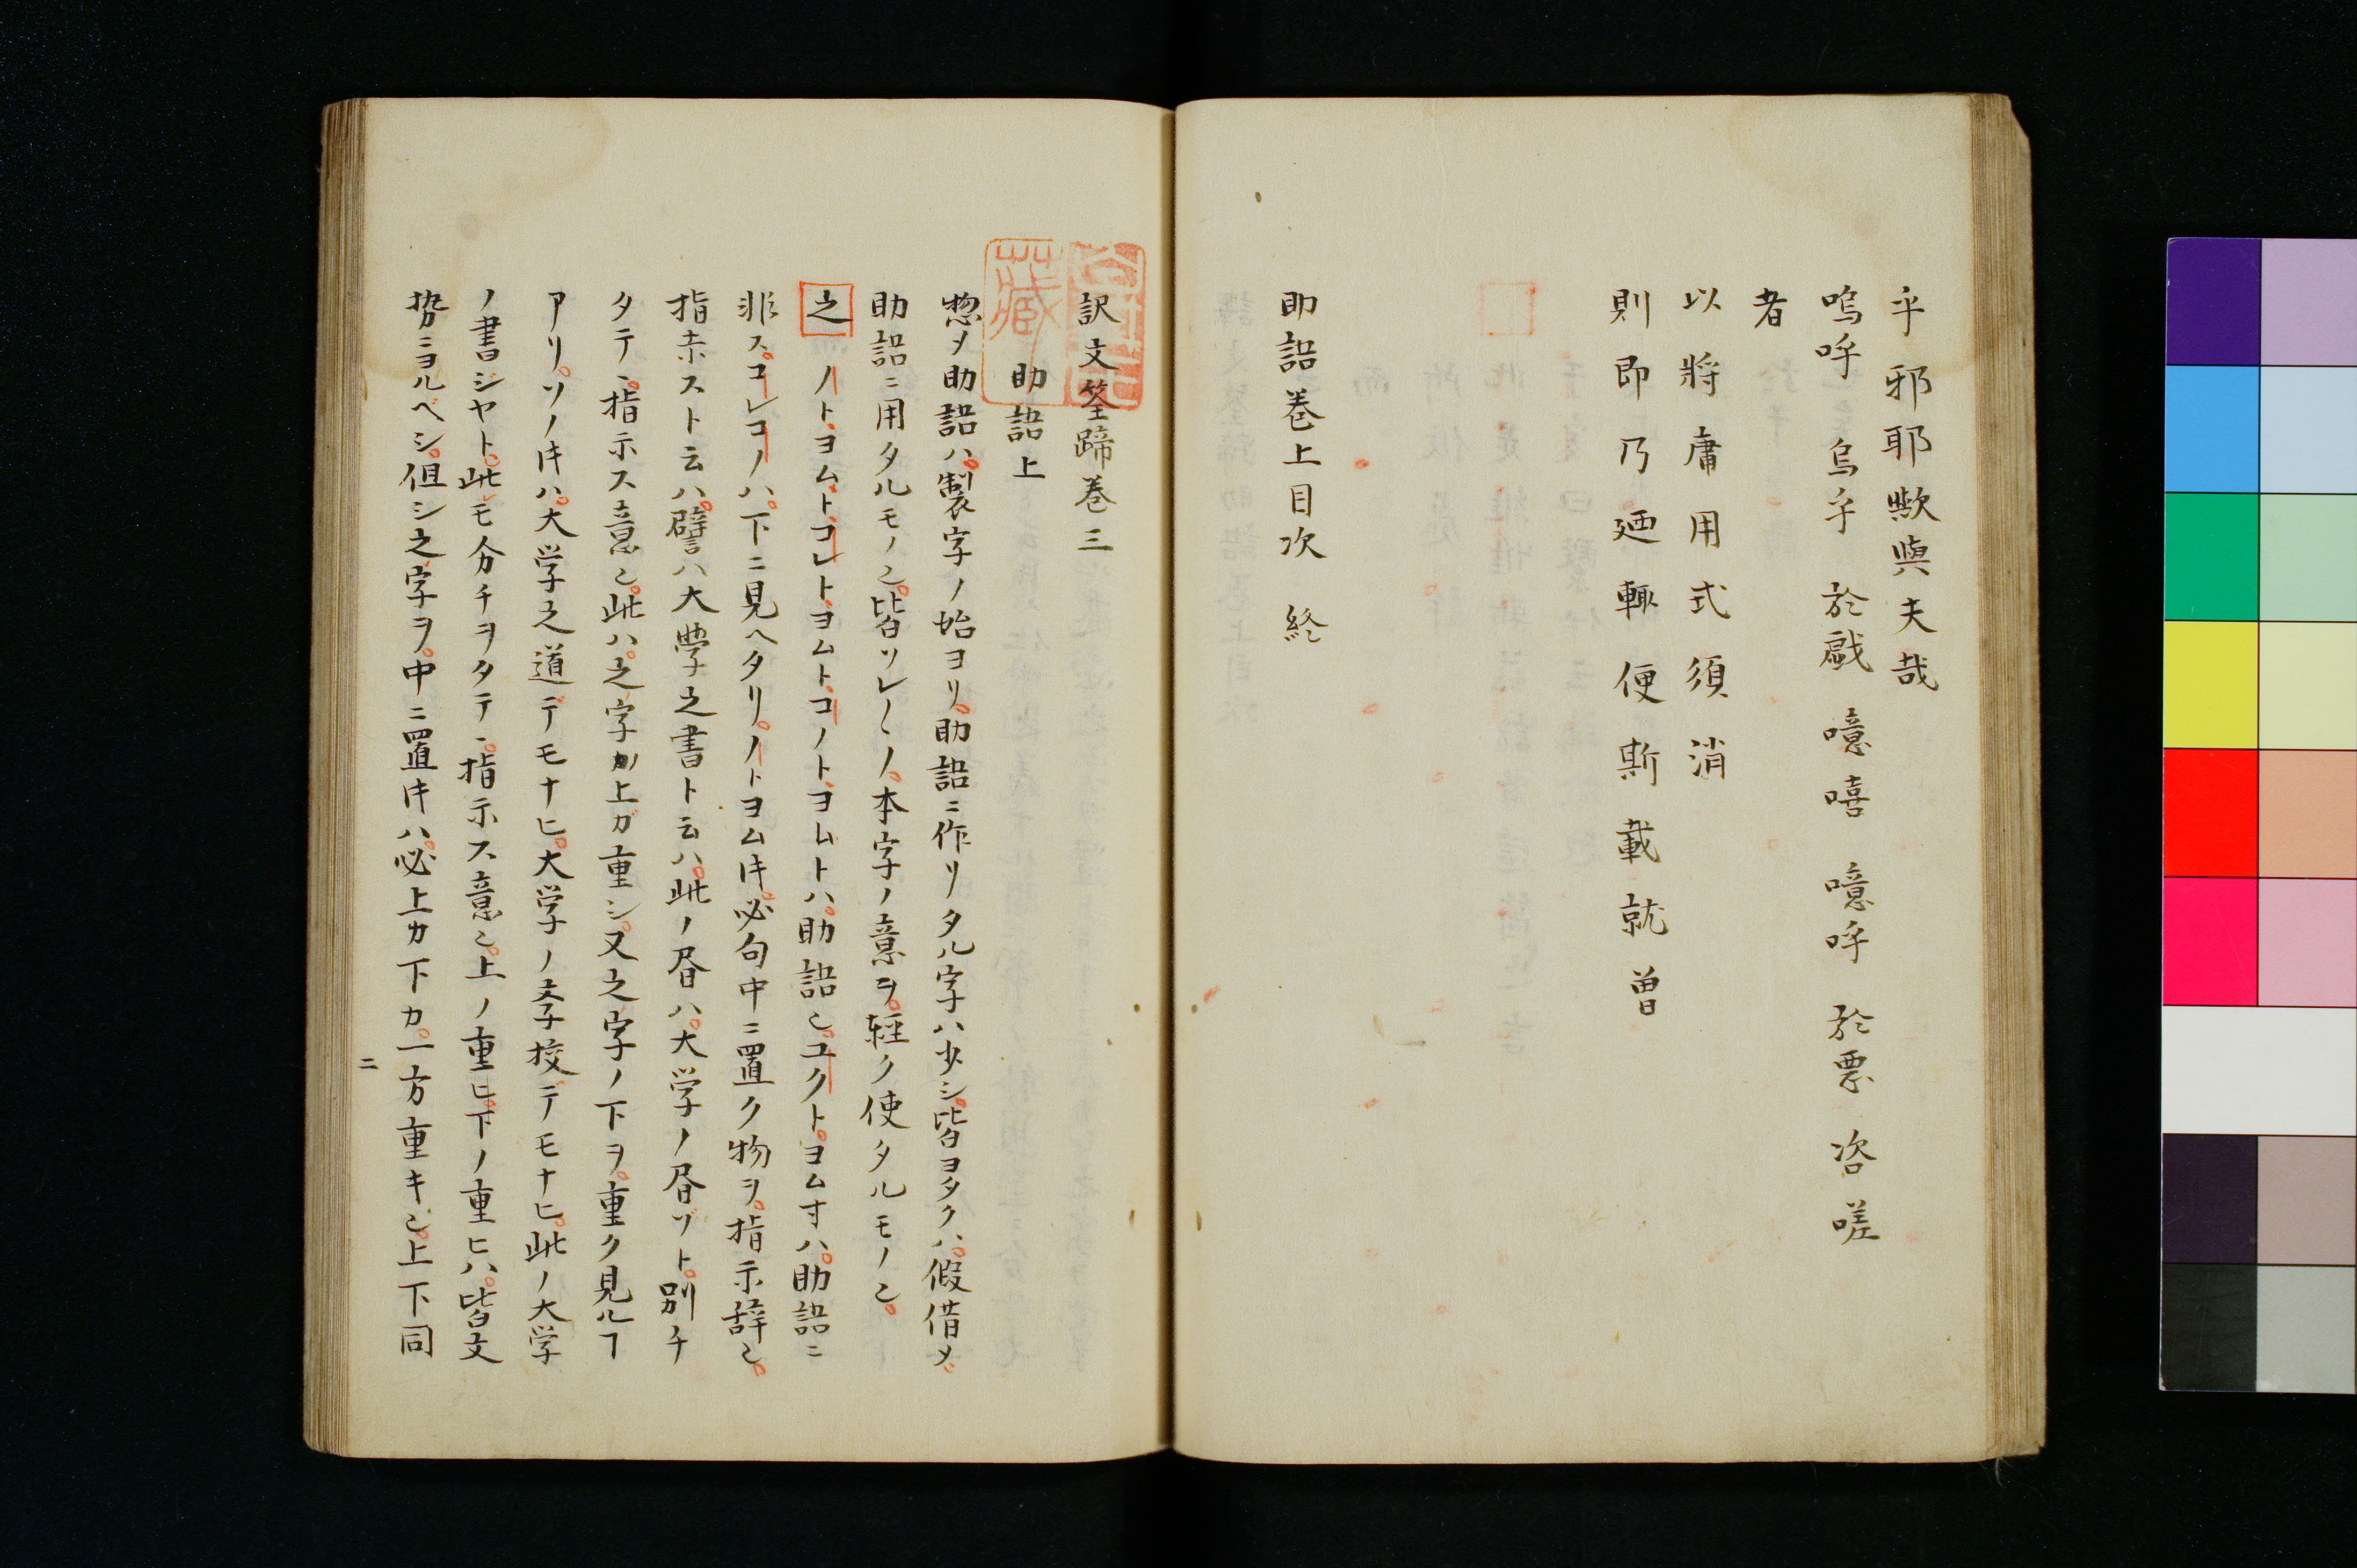 乎邪耶歟與夫哉
嗚呼 烏乎 於戯 噫嘻 噫呼 於悪 咨嗟
者
以將庸用式須消
則即乃廼輙便斯載就曽
助語巻上目次 終
訳文筌蹄巻三
助語上
惣〆助語ハ製字ノ始ヨリ助語ニ作リタル字ハ少シ皆ヨタクハ假借〆
助語ニ用タルモノ也皆ソレ〱ノ本字ノ意ヲ軽ク使タルモノ也
之 ノトヨムトコレトヨムトコノトヨムトハ助語也ユクトヨムヿハ助語ニ
非スコレコノハ下ニ見ヘタリノトヨム𪜈必句中ニ置ク物ヲ指示辞也
指示スト云ハ譬ハ大學之書ト云ハ此ノ昏ハ大学ノ昏ゾト別チ
タテヽ指示ス意也此ハ之字カ上ガ重シ又之字ノ下ヲ重ク見ルヿ
アリソノ𪜈ハ大学之道デモナヒ大学ノ斈校デモナヒ此ノ大学
ノ書ジヤト此モ分チヲタテヽ指示ス意也上ノ重ヒ下ノ重ヒハ皆文
勢ニヨルベシ但シ之字ヲ中ニ置𪜈ハ必上カ下カ一方重キ也上下同
二
藏